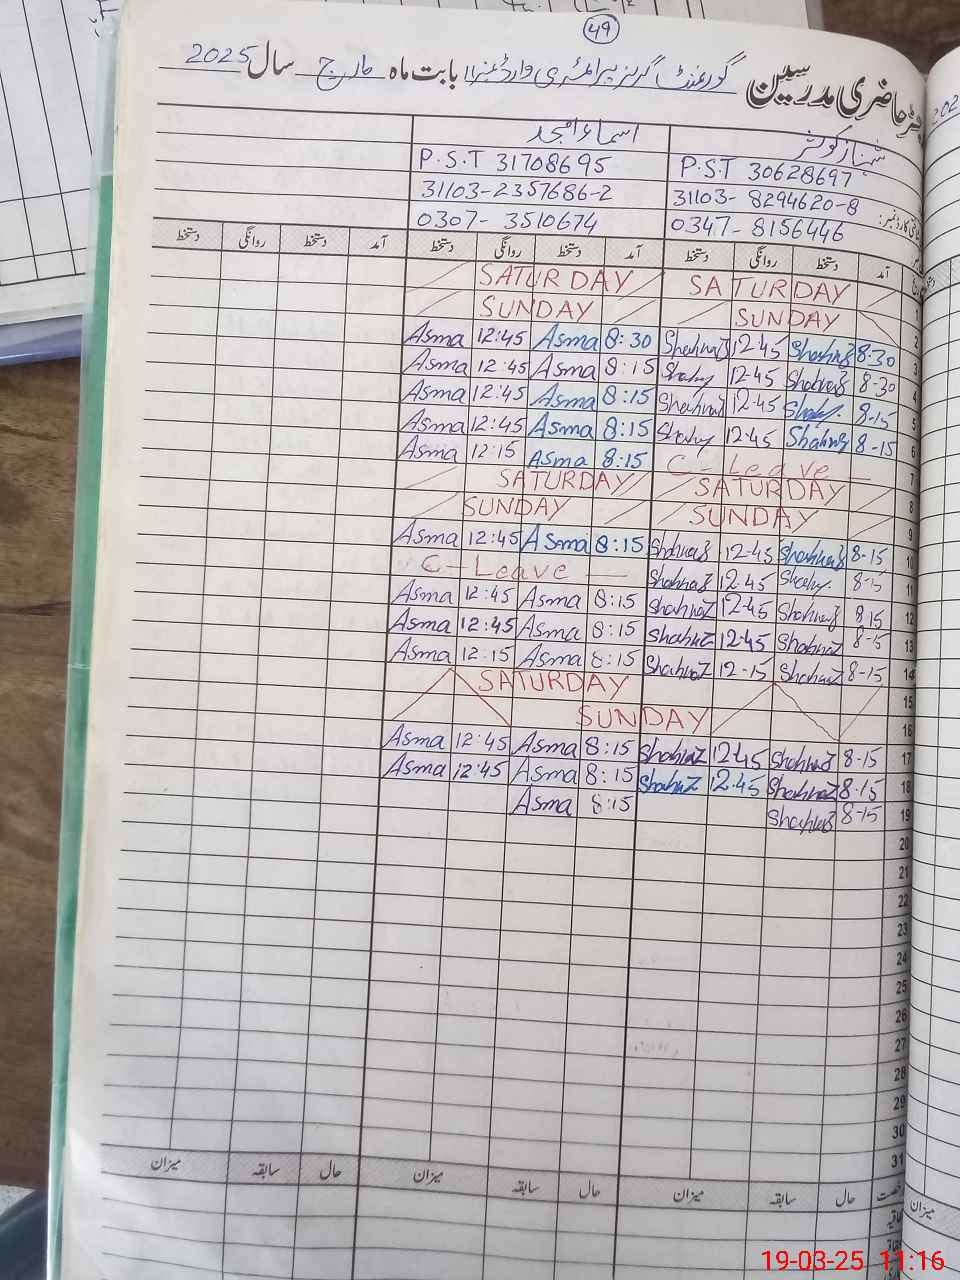 49
رجسٹر حاضری مدرسین گورنمنٹ گرلز پرائمری وارڈ نمبر 11 بابت ماہ مارچ سال 2025
شہناز کوثر اسماء امجد
P.S.T 30628697 P.S.T 31708695
31103-8294620-8 31103-2357686-2
0347-8156446 0307-3510674
آمد دستخط روانگی دستخط آمد دستخط روانگی دستخط آمد دستخط روانگی دستخط
SATURDAY SATURDAY 1
SUNDAY SUNDAY 2
Asma 12:45 Asma 8:30 Shahnaz 12-45 Shahnaz 8-30 3
Asma 12:45 Asma 8:15 Shahnaz 12-45 Shahnaz 8-30 4
Asma 12:45 Asma 8:15 Shahnaz 12-45 Shahnaz 8-15 5
Asma 12:45 Asma 8:15 Shahnaz 12-45 Shahnaz 8-15 6
Asma 12:15 Asma 8:15 C-Leave 7
SATURDAY SATURDAY 8
SUNDAY SUNDAY 9
Asma 12:45 Asma 8:15 Shahnaz 12-45 Shahnaz 8-15 10
C-Leave Shahnaz 12-45 Shahnaz 8-15 11
Asma 12:45 Asma 8:15 Shahnaz 12-45 Shahnaz 8-15 12
Asma 12:45 Asma 8:15 Shahnaz 12-45 Shahnaz 8-15 13
Asma 12:15 Asma 8:15 Shahnaz 12-15 Shahnaz 8-15 14
SATURDAY 15
SUNDAY 16
Asma 12:45 Asma 8:15 Shahnaz 12-45 Shahnaz 8-15 17
Asma 12:45 Asma 8:15 Shahnaz 12-45 Shahnaz 8-15 18
Asma 8:15 Shahnaz 8-15 19
20
21
22
23
24
25
26
27
28
29
30
31
حال سابقہ میزان حال سابقہ میزان حال سابقہ میزان
میزان
19-03-25 11:16